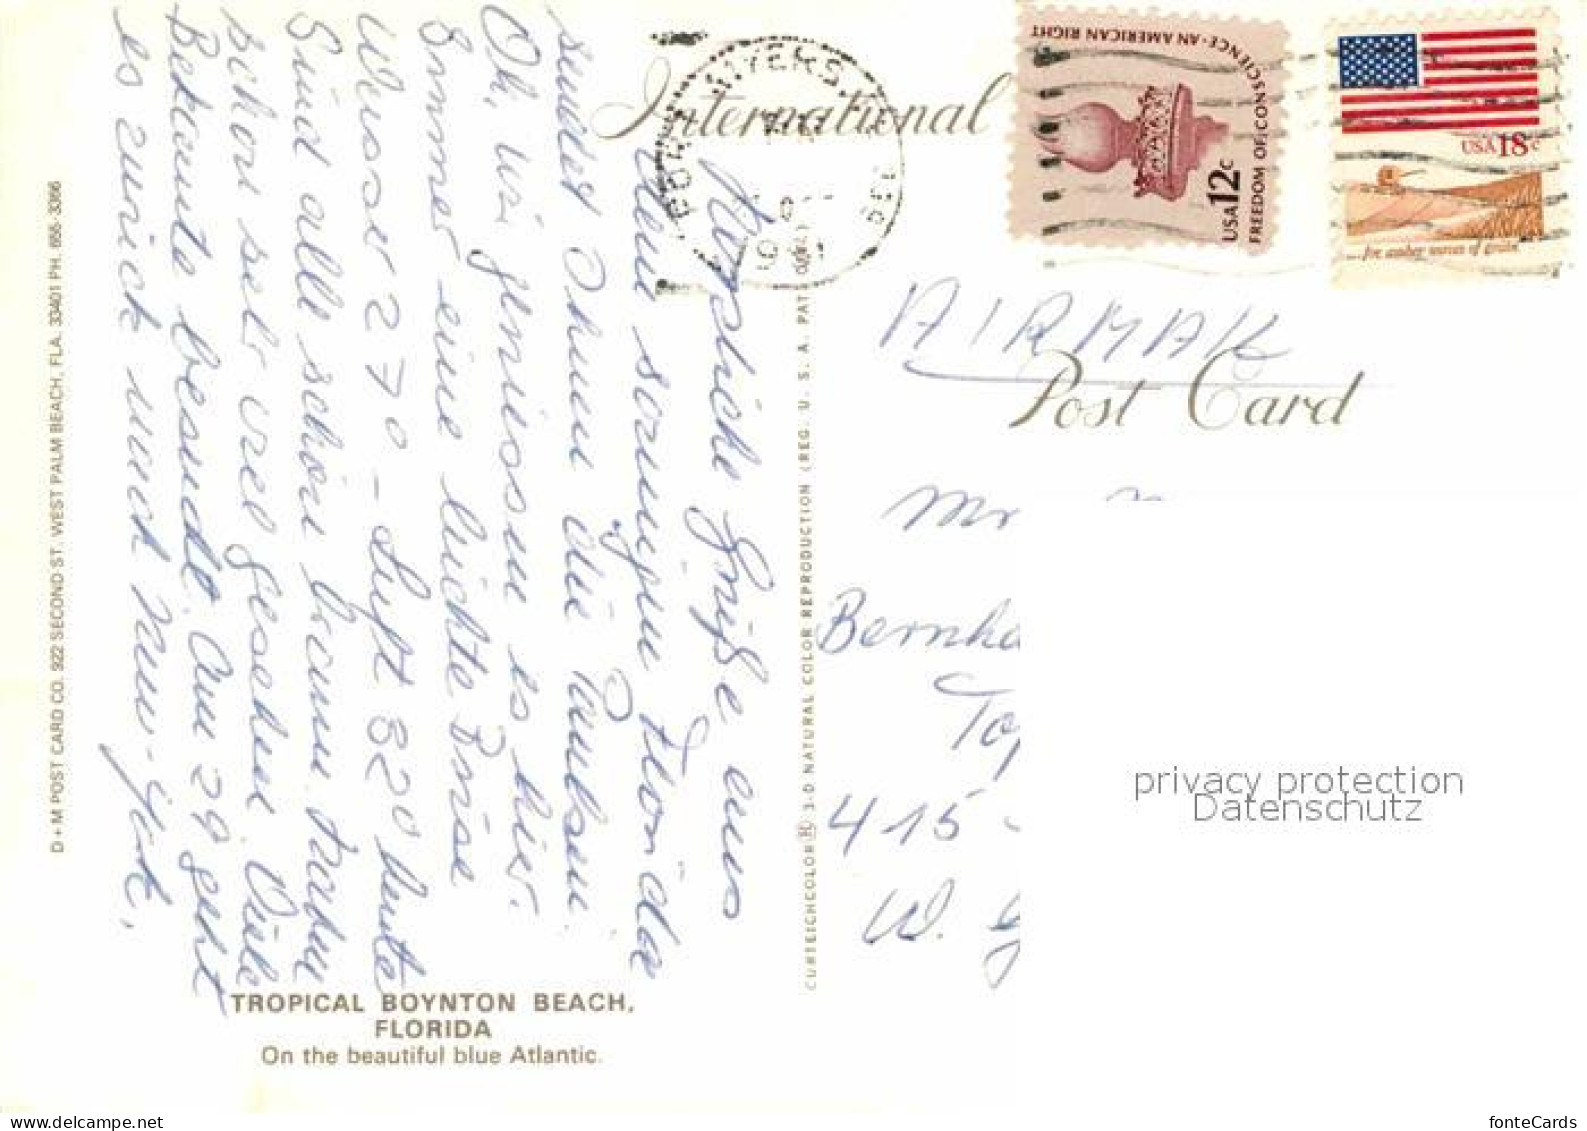 Herzliche Grüße aus
dem sonnigen Florida
sendet Ihnen die Paulsen.
Oh, wir geniessen es hier.
Immer eine leichte Brise
Wasser 27° - Luft 32° heute
Sind alle schön braun. Haben
schon sehr viel gesehen. Viele
Bekannte besucht. Am 29. geht
es zurück nach New-York.
D+M POST CARD CO. 922 SECOND ST. WEST PALM BEACH, FLA. 33401 PH. 655-3066
TROPICAL BOYNTON BEACH,
FLORIDA
On the beautiful blue Atlantic.
CURTEICHCOLOR ® 3-D NATURAL COLOR REPRODUCTION (REG. U. S. A. PAT.
International
Post Card
FORT MYERS,
SCIENCE-AN AMERICAN RIGHT
FREEDOM OF CONSCIENCE-AN AMERICAN RIGHT
USA 12c
USA 18c
...for amber waves of grain
AIRMAIL
Mr
Bernha
To
415
W.
privacy protection
Datenschutz
www.delcampe.net
fonteCards